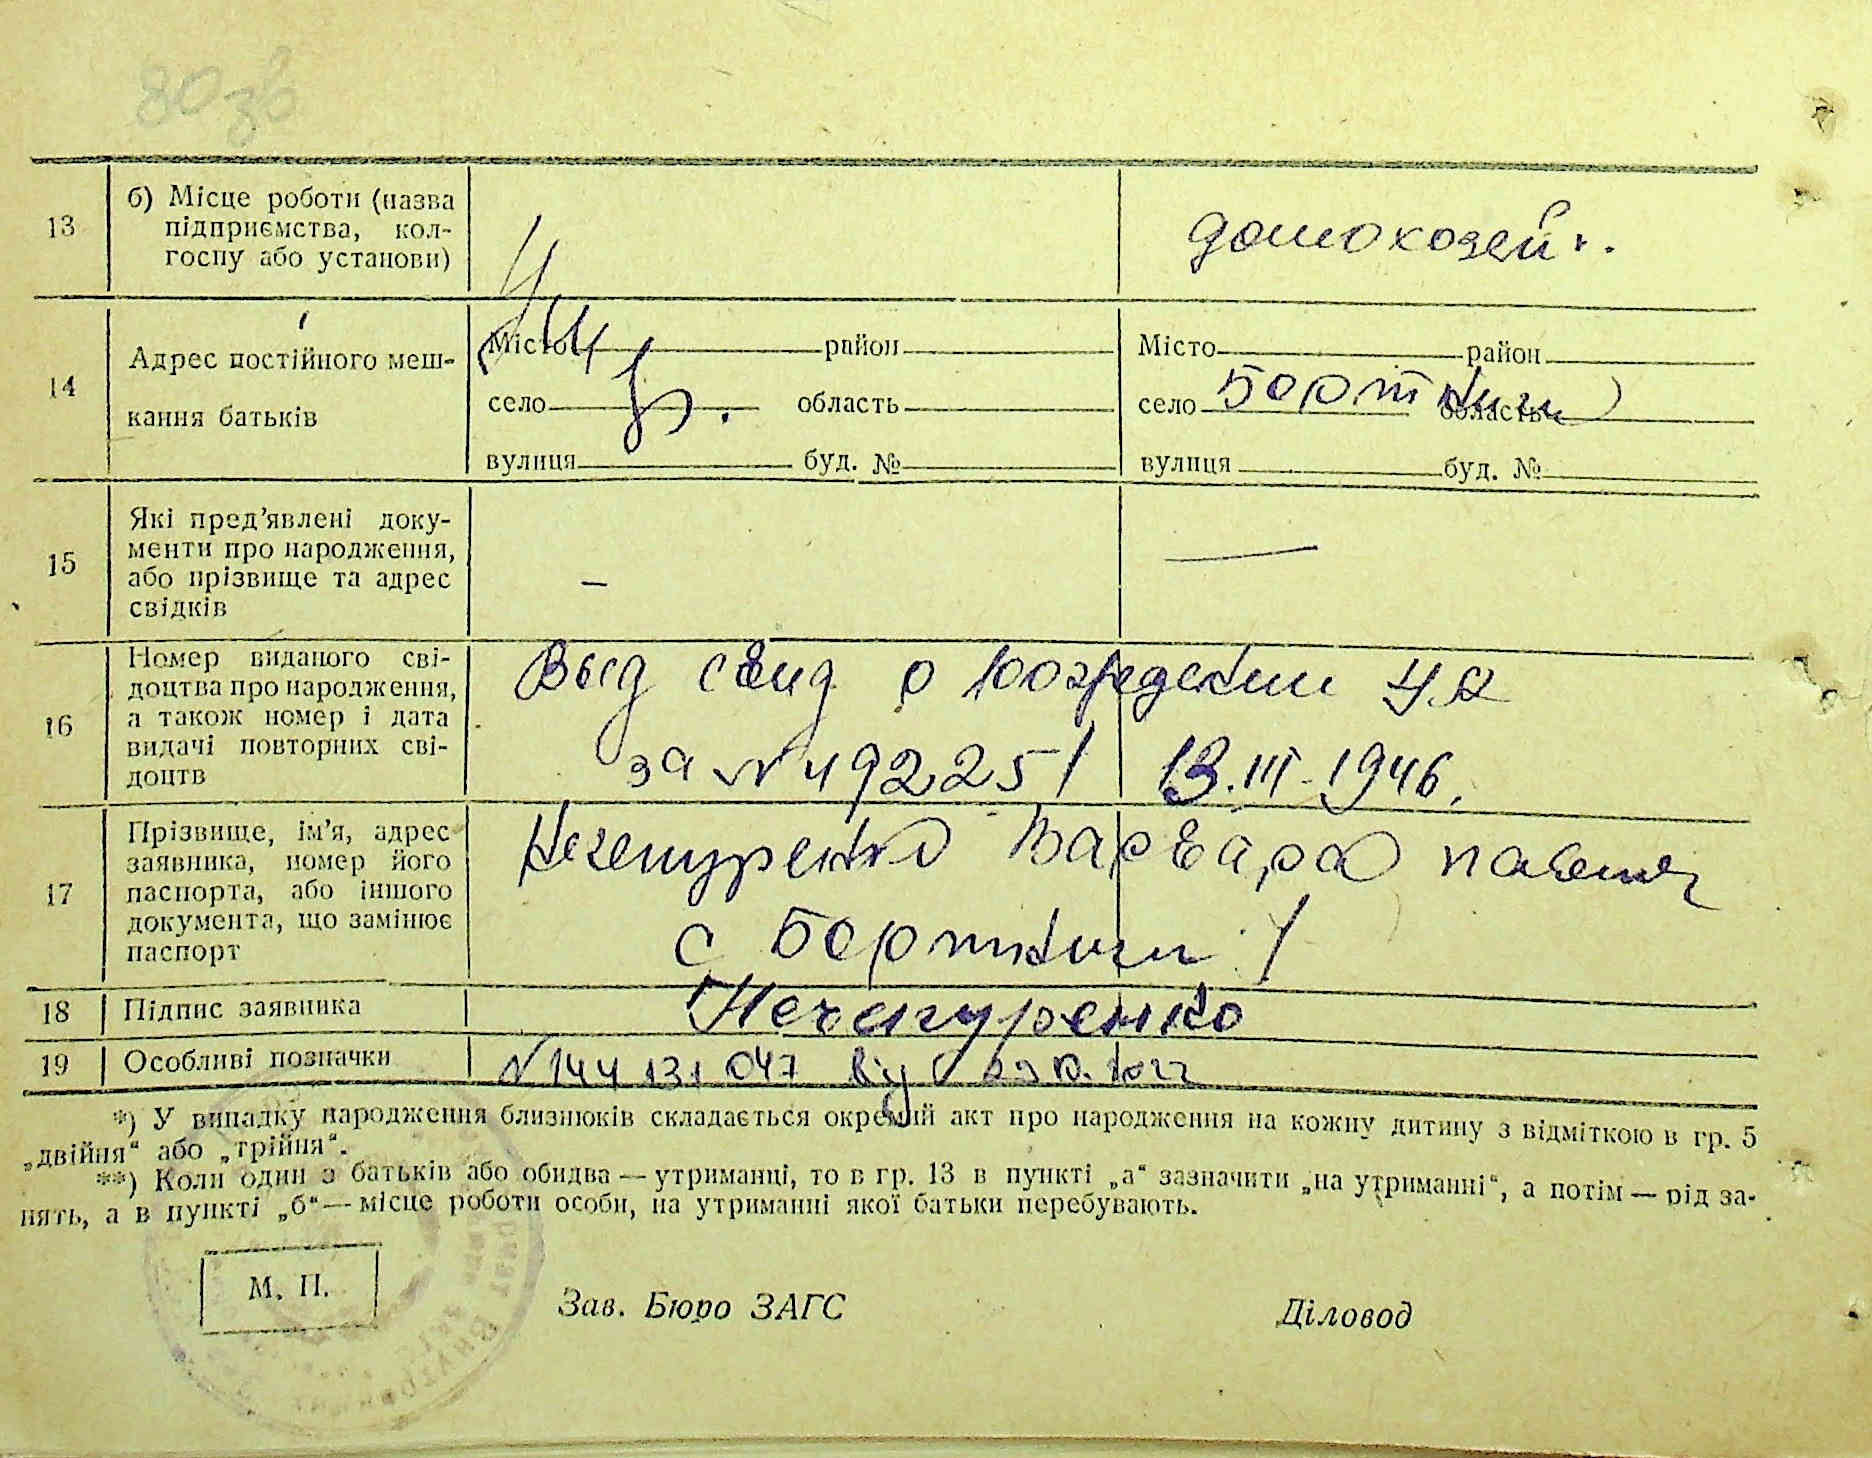 80 зв
13
б) Місце роботи (назва
підприємства, кол-
госпу або установи)
домохозяй.
14
Адрес постійного меш-
кання батьків
Місто район
село область
вулиця буд. №
Місто район
село Бортничи область
вулиця буд. №
15
Які пред’явлені доку-
менти про народження,
або прізвище та адрес
свідків
—
—
16
Номер виданого сві-
доцтва про народження,
а також номер і дата
видачі повторних сві-
доцтв
Выд свид о
за № 492251 13.III-1946.
17
Прізвище, ім’я, адрес
заявника, номер його
паспорта, або іншого
документа, що замінює
паспорт
Нечепуренко Варвара
с Бортничи
18
Підпис заявника
Нечепуренко
19
Особливі позначки
№ 144 131 047 від
*) У випадку народження близнюків складається окремий акт про народження на кожну дитину з відміткою в гр. 5
„двійня“ або „трійня“.
**) Коли один з батьків або обидва — утриманці, то в гр. 13 в пункті „а“ зазначити „на утриманні“, а потім — рід за-
нять, а в пункті „б“ — місце роботи особи, на утриманні якої батьки перебувають.
М. П.
Зав. Бюро ЗАГС
Діловод